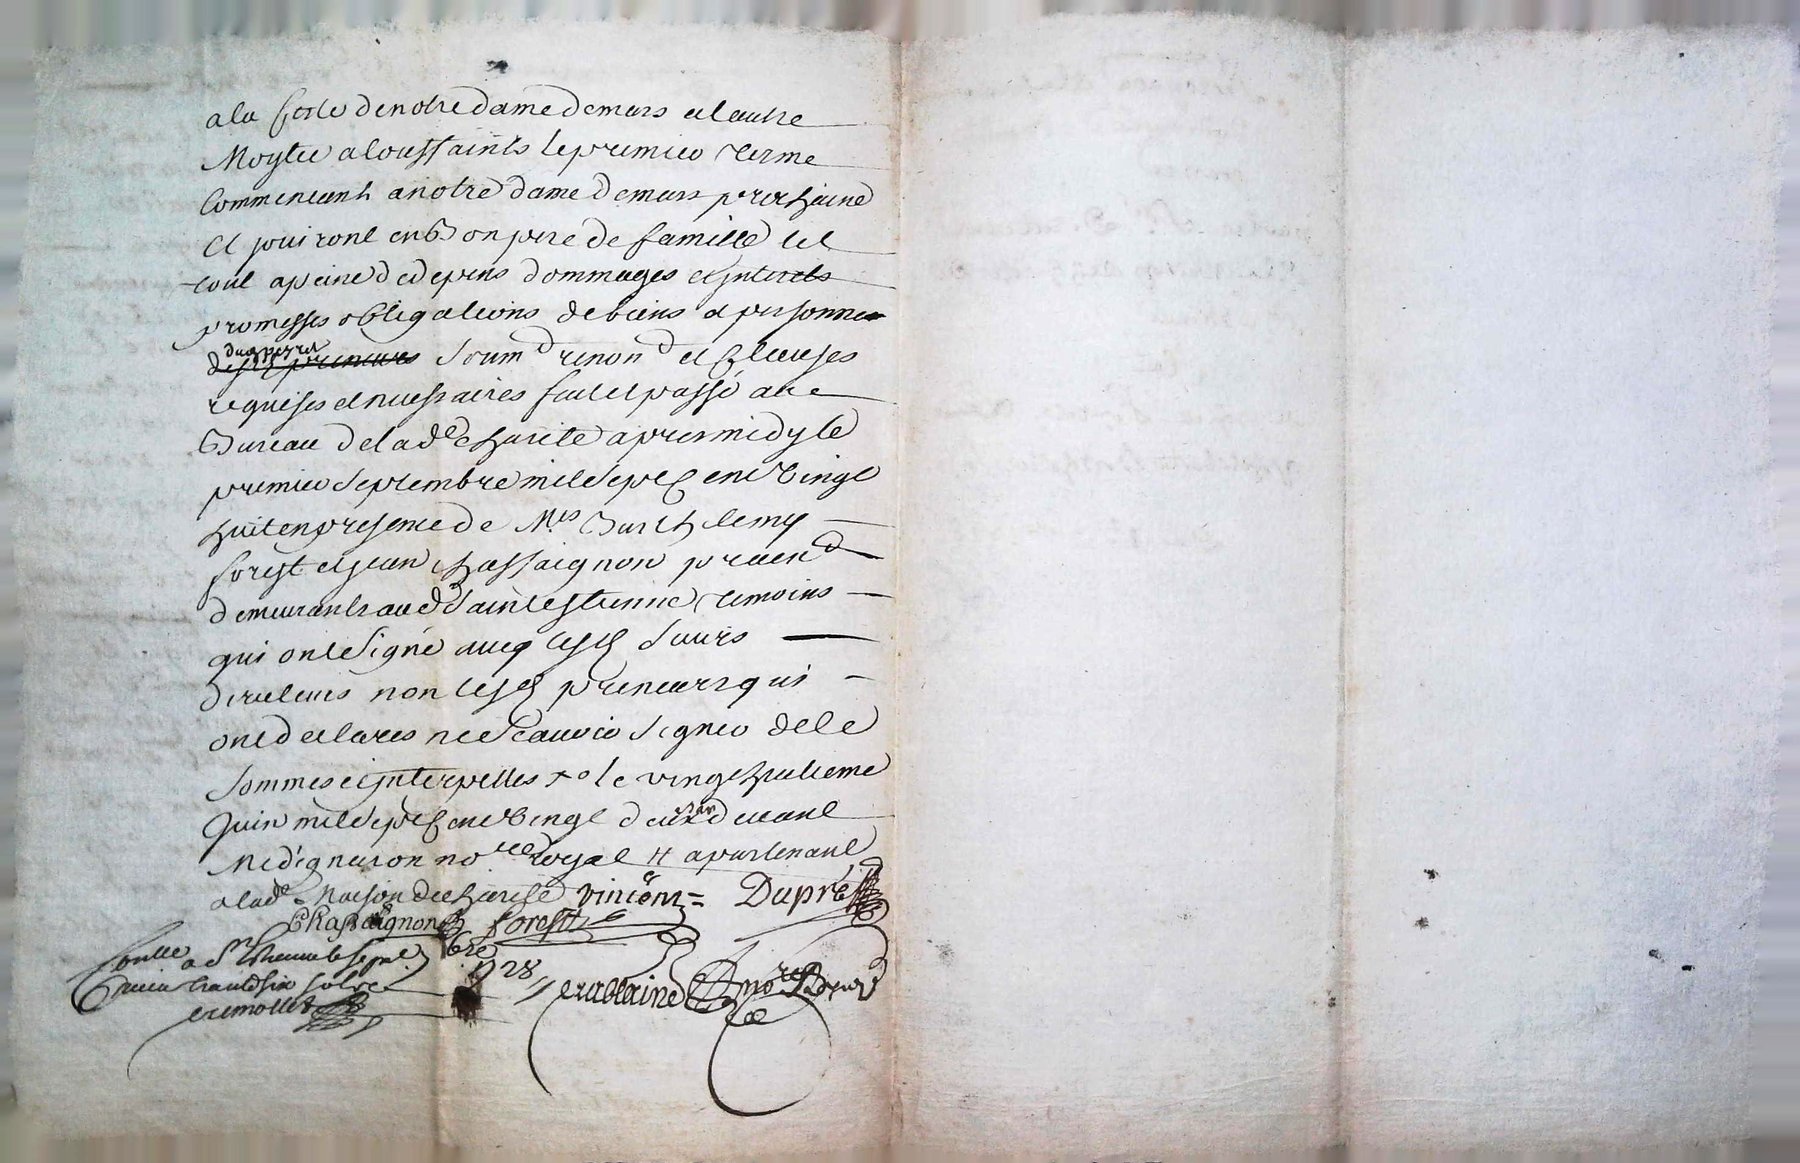 a la feste de notre dame de mars et lautre
Moytie a toussaints le premier terme
Commencant a notre dame de mars prochaine
et jouiront en bon pere de famille let
tout a peine de depens dommages et jnterets
promesses obligations de biens et personne
dud perret
des preneurs soum renon et clauses
requises et necessaires fait et passé au
Bureau de lad charité apres midy le
premier septembre mil sept cent vingt
huit en presence de Mes Barthlemy
forest et jean chassaignon praen
demeurants aud saint estienne temoins
qui ont signé avec lesd sieurs
directeurs non lesd preneurs qui
ont declares ne scavoir signer de ce
sommes et jnterpelles le vingt huitieme
Juin mil sept cent vingt deux devant
Me dignaron nore royal # apartenant
a lad Maison de charité vincent = Dupré
Chassaignon forest
Conlle a St Etienne le sept bre
1728
tremollet